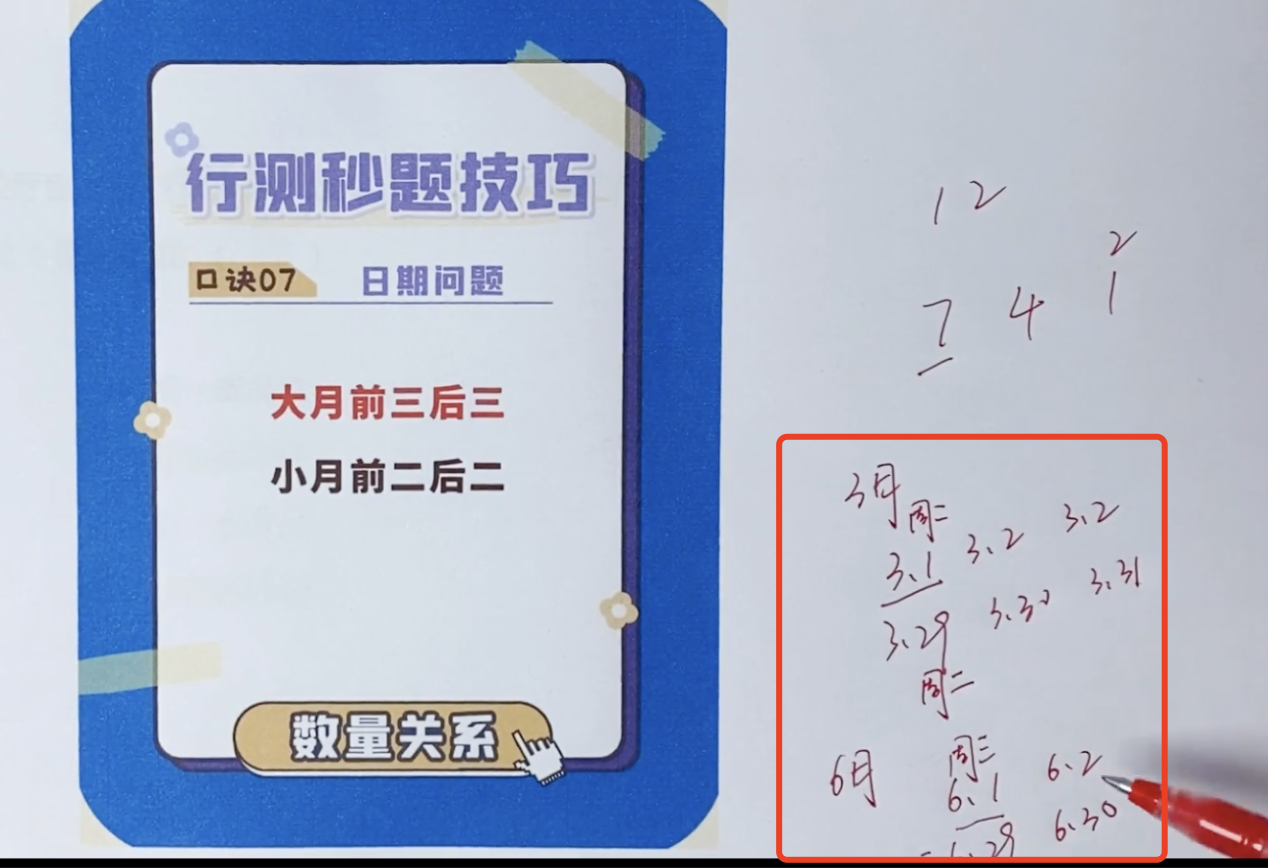 行测秒题技巧
口诀07 日期问题
大月前三后三
小月前二后二
数量关系
12
2
7 4 1
3月
周二
3.1 3.2 3.2
3.29 3.30 3.31
周二
6月 周三
6.1 6.2
6.29 6.30